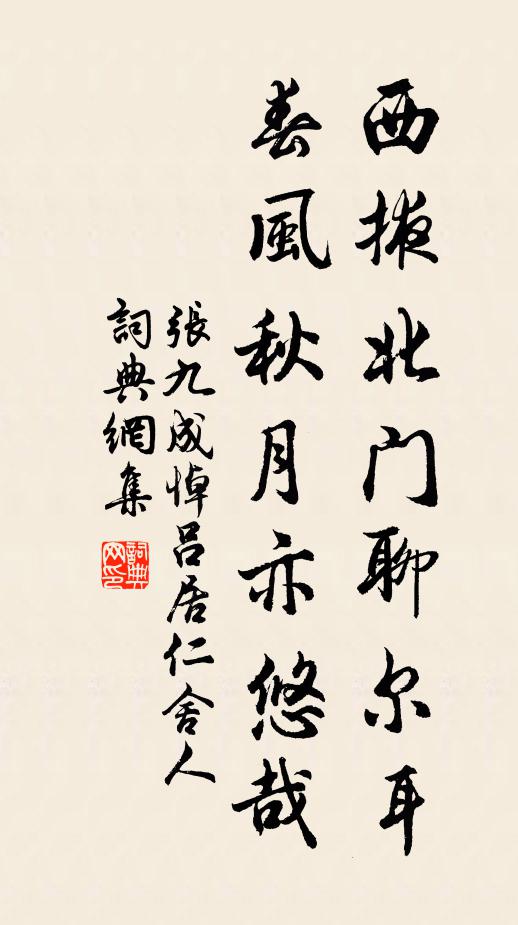 西掖北门聊尔耳
春風秋月亦悠哉
張九成悼吕居仁舍人
詞典網集
詞典网印